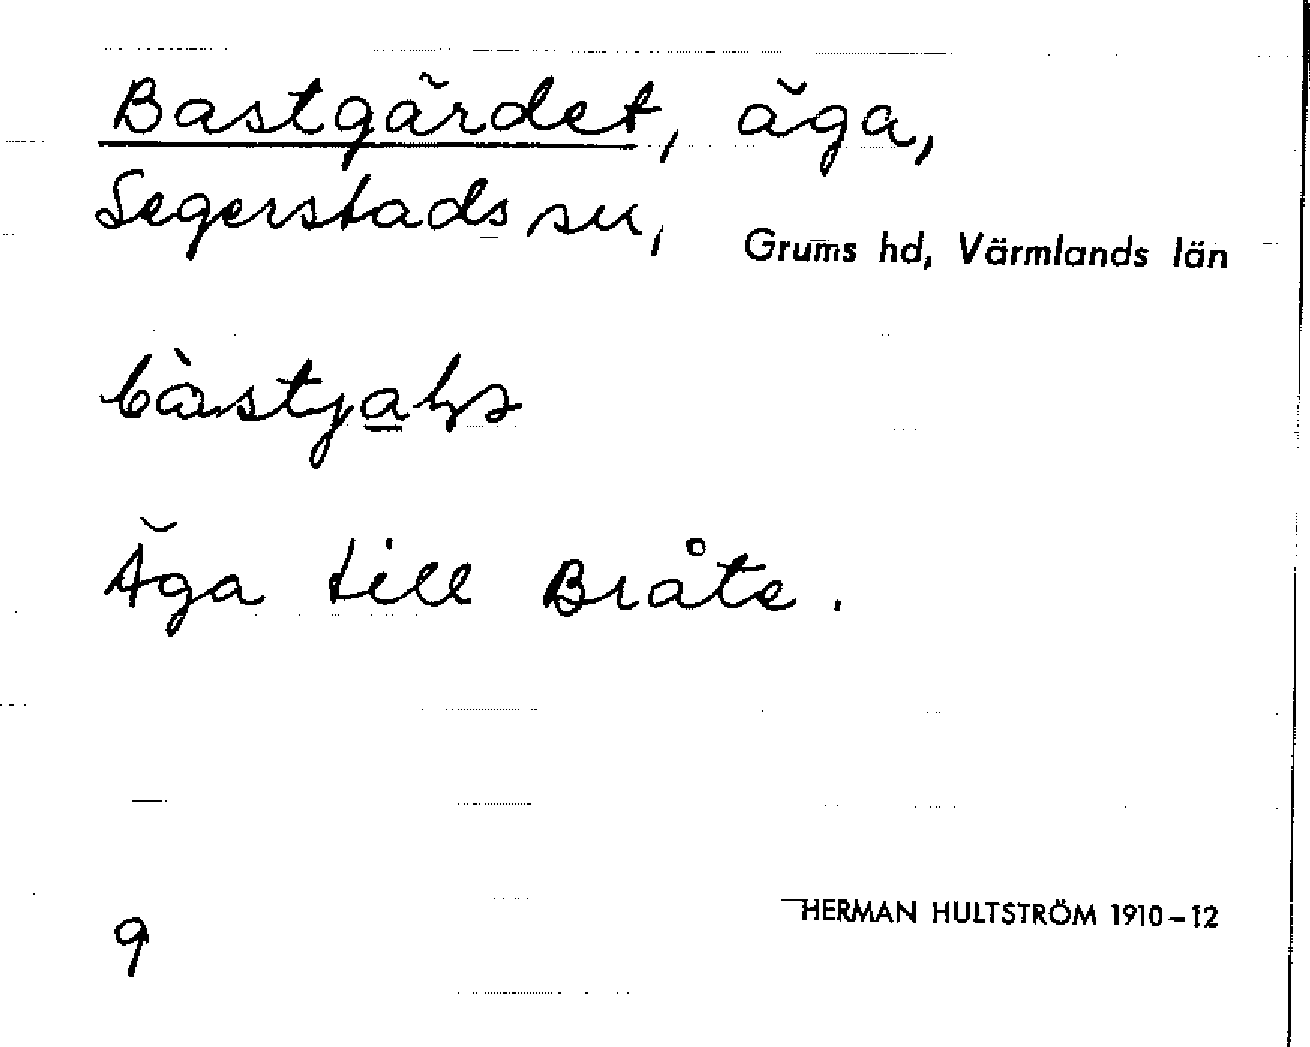 Bastgärdet, äga,
Segerstads sn, Grums hd, Värmlands län
Äga till Bråte.
HERMAN HULTSTRÖM 1910–12
9